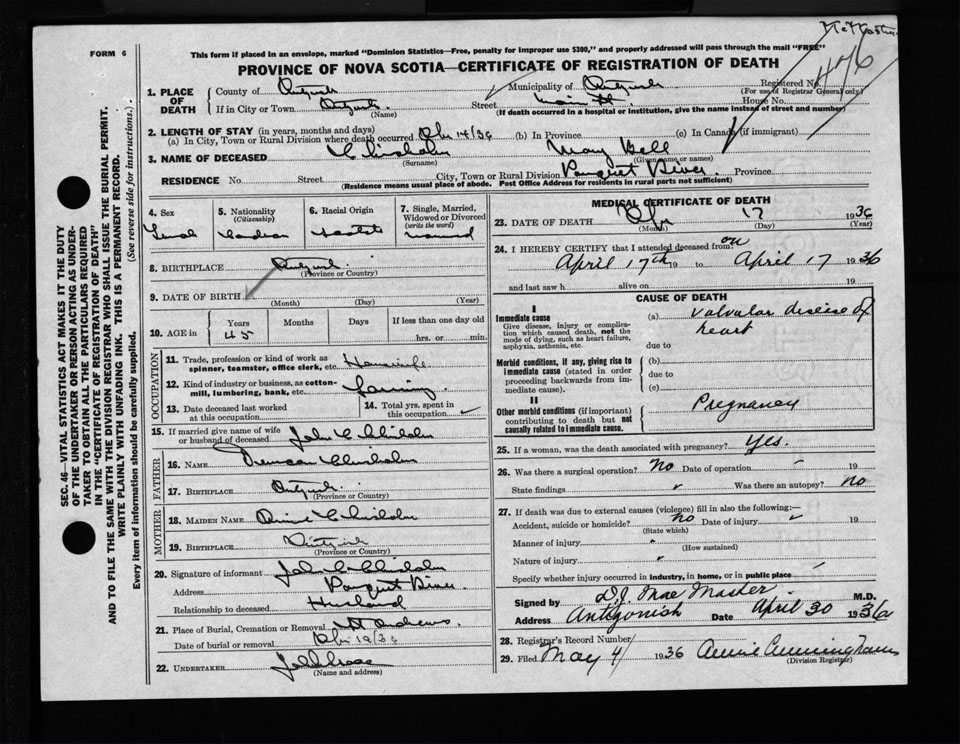 McMaster
FORM 6
This form if placed in an envelope, marked "Dominion Statistics—Free, penalty for improper use $300," and properly addressed will pass through the mail "FREE"
PROVINCE OF NOVA SCOTIA—CERTIFICATE OF REGISTRATION OF DEATH
476
1. PLACE OF DEATH
County of
Municipality of
Registered No.
(For use of Registrar General only)
If in City or Town
(Name)
Street Main St.
House No.
(If death occurred in a hospital or institution, give the name instead of street and number)
2. LENGTH OF STAY (in years, months and days)
(a) In City, Town or Rural Division where death occurred 14/36 (b) In Province (c) In Canada (if immigrant)
3. NAME OF DECEASED Chisholm Mary Bell
(Surname) (Given name or names)
RESIDENCE No. Street City, Town or Rural Division Pomquet River Province
(Residence means usual place of abode. Post Office Address for residents in rural parts not sufficient)
4. Sex
5. Nationality (Citizenship)
6. Racial Origin
7. Single, Married, Widowed or Divorced (write the word)
Female Canadian Scotch married
8. BIRTHPLACE
(Province or Country)
9. DATE OF BIRTH
(Month) (Day) (Year)
10. AGE in
Years Months Days If less than one day old
45 hrs. or min.
OCCUPATION
11. Trade, profession or kind of work as spinner, teamster, office clerk, etc. Housewife
12. Kind of industry or business, as cotton-mill, lumbering, bank, etc. farming
13. Date deceased last worked at this occupation
14. Total yrs. spent in this occupation
15. If married give name of wife or husband of deceased John C Chisholm
FATHER
16. NAME Duncan Chisholm
17. BIRTHPLACE
(Province or Country)
MOTHER
18. MAIDEN NAME Chisholm
19. BIRTHPLACE
(Province or Country)
20. Signature of informant John C Chisholm
Address Pomquet River
Relationship to deceased Husband
21. Place of Burial, Cremation or Removal St Andrews.
Date of burial or removal 19/36
22. UNDERTAKER
(Name and address)
MEDICAL CERTIFICATE OF DEATH
23. DATE OF DEATH 17 1936
(Month) (Day) (Year)
24. I HEREBY CERTIFY that I attended deceased from on
April 17th 19 to April 17 1936
and last saw h alive on 19
CAUSE OF DEATH
I
Immediate cause
Give disease, injury or complication which caused death, not the mode of dying, such as heart failure, asphyxia, asthenia, etc.
(a) Valvular disease of heart
due to
Morbid conditions, if any, giving rise to immediate cause (stated in order proceeding backwards from immediate cause).
(b)
due to
(c)
II
Other morbid conditions (if important) contributing to death but not causally related to immediate cause.
Pregnancy
25. If a woman, was the death associated with pregnancy? Yes.
26. Was there a surgical operation? No Date of operation 19
State findings Was there an autopsy? No
27. If death was due to external causes (violence) fill in also the following:—
Accident, suicide or homicide? no Date of injury 19
(State which)
Manner of injury
(How sustained)
Nature of injury
Specify whether injury occurred in industry, in home, or in public place
Signed by MacMaster M.D.
Address Antigonish Date April 30 1936
28. Registrar's Record Number
29. Filed May 4/ 1936 Annie Cunningham
(Division Registrar)
SEC. 46—VITAL STATISTICS ACT MAKES IT THE DUTY
OF THE UNDERTAKER OR PERSON ACTING AS UNDER-
TAKER TO OBTAIN ALL THE PARTICULARS REQUIRED
IN THE "CERTIFICATE OF REGISTRATION OF DEATH"
AND TO FILE THE SAME WITH THE DIVISION REGISTRAR WHO SHALL ISSUE THE BURIAL PERMIT.
WRITE PLAINLY WITH UNFADING INK. THIS IS A PERMANENT RECORD.
Every item of information should be carefully supplied. (See reverse side for instructions.)